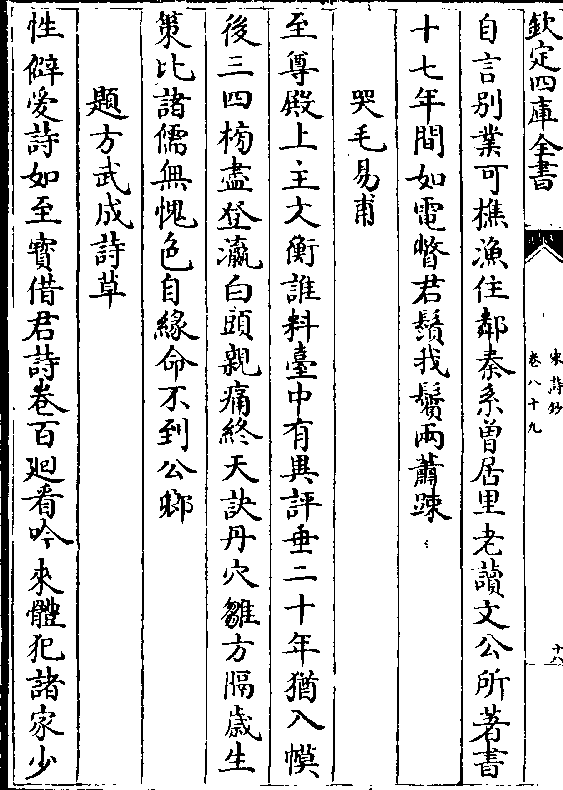 欽定四庫全書
宋詩鈔
卷八十九
十八
自言别業可樵漁住鄰秦系曽居里老讀文公所著書
十七年間如電瞥君鬚我鬢兩蕭踈
哭毛易甫
至尊殿上主文衡誰料臺中有異評垂二十年猶入幙
後三四榜盡登瀛白頭親痛終天訣丹穴雛方隔歲生
策比諸儒無愧色自緣命不到公卿
題方武成詩草
性僻愛詩如至寳借君詩卷百廻看吟來體犯諸家少